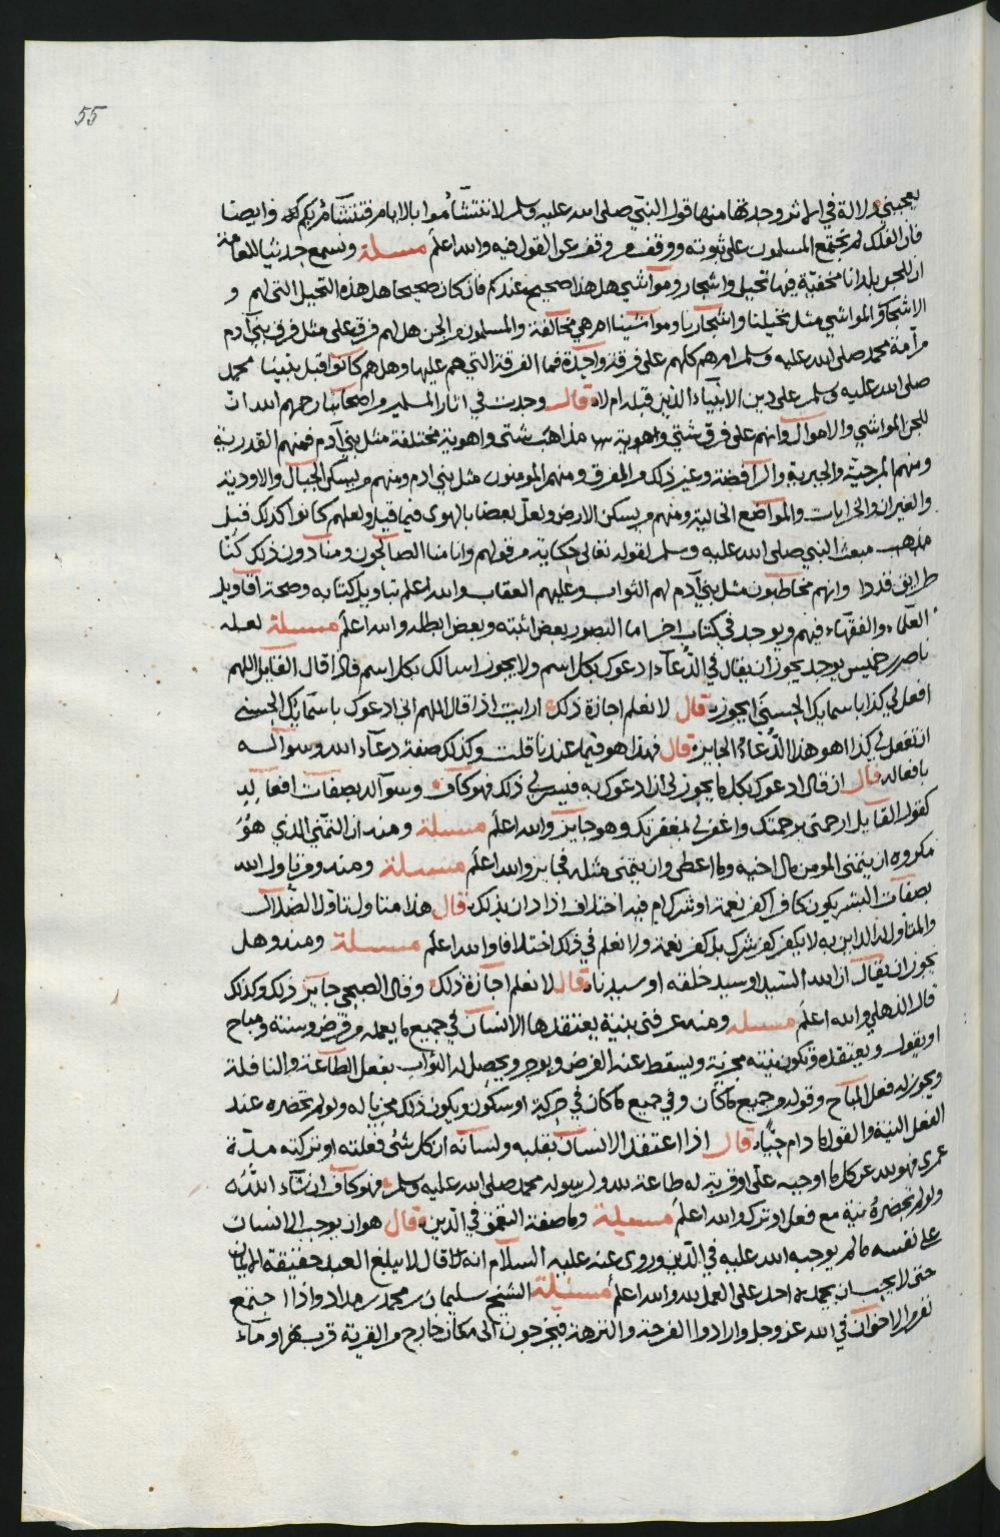 55
يعجبني دلالة في الاثر وجدتها منها قول النبي صلى الله عليه وسلم لا تتشأموا بالايام فتتشآم بكم وايضا
فان الفلك لم تجتمع المسلمون على ثبوته ووقف من وقف عن القول فيه والله اعلم مسئلة ونسمع حديثا للعامة
ان للجن بلدانا مخفية فيها نخيل واشجار ومواشي هل هذا صحيح عندكم فان كان صحيحا هل هذه النخيل التي لهم و
الاشجار والمواشي مثل نخيلنا واشجارنا ومواشينا ام هي مخالفة والمسلمون من الجن هل لهم فرق على مثل فرق بني آدم
من أمة محمد صلى الله عليه وسلم ام هم كلهم على فرقة واحدة فما الفرقة التي هم عليها وهل هم كانوا قبل نبينا محمد
صلى الله عليه وسلم على دين الانبياء الذين قبله ام لا قال وجدت في اثار المسلمين واصحابنا رحمهم الله ان
للجن المواشي والاموال وانهم على فرق شتى واهوية مذاهب شتى واهوية مختلفة مثل بني آدم فمنهم القدرية
ومنهم المرجية والجبرية والرافضة وغير ذلك من الفرق ومنهم المومنون مثل بني ادم ومنهم من يسكن الجبال والاودية
والغيران والخرابات والمواضع الخالية ومنهم من يسكن الارض ولعل بعضا بالهوى فيما قيل ولعلهم كانوا كذلك قبل
مبعث النبي صلى الله عليه وسلم لقوله تعالى حكاية من قولهم وانا منا الصالحون ومنا دون ذلك كنا
طرايق قددا وانهم مخاطبون مثل بني آدم لهم الثواب وعليهم العقاب والله اعلم بتاويل كتابه وصحة اقاويل
العلماء والفقهاء فيهم ويوجد في كتاب اخر اما التصور بعض اثبته وبعض ابطله والله اعلم مسئلة لعله
ناصر بن خميس يوجد يجوز ان يقال في الدعآء ادعوك بكل اسم ولا يجوز اسالك بكل اسم فاذا قال القايل اللهم
افعل لي كذا باسمايك الحسنى ايجوز قال لا نعلم اجازة ذلك ارايت اذا قال اللهم اني ادعوك باسمآيك الحسنى
ان تفعل لي كذا اهو هذا الدعاء الجايز قال فهذا هو فيما عندنا قلت وكذلك صفة دعآء الله وسوآله
بافعاله قال ان قال ادعوك بكل ما يجوز لي ان ادعوك به فيسر لي ذلك فهو كآف وسوآله بصفات افعاله
كقول القآيل ارحمني برحمتك واغفر لي بمغفرتك وهو جايز والله اعلم مسئلة ومنه ان التمني الذي هو
مكروه ان يتمنى المومن مال اخيه وما اعطي وان يتمنى مثله فجايز والله اعلم مسئلة ومنه ومن تاول الله
بصفات البشر يكون كافرا كفر نعمة او شرك ام فيه اختلاف اذا دان بذلك قال هذا متاول تاول الضلال
والمتاول الداين به لا يكفر كفر شرك بل كفر نعمة ولا نعلم في ذلك اختلافا والله اعلم مسئلة ومنه وهل
يجوز ان يقال ان الله السيد او سيد خلقه او سيدنا قال لا نعلم اجازة ذلك وقال الصبحي جايز ذلك وكذلك
قال الذهلي والله اعلم مسئلة ومنه عرفني بنية يعتقدها الانسان في جميع ما يعمله من فرض وسنة ومباح
او يقول ويعتقده وتكون نيته مجزية ويسقط عنه الفرض ويوجر ويحصل له الثواب بفعل الطاعة والنافلة
ويجوز له فعل المباح وقوله وجميع ما كان وفي جميع ما كان في حركة او سكون ويكون ذلك مجزيا له ولو لم تحضره عند
الفعل النية والقول ما دام حيًّا قال اذا اعتقد الانسان بقلبه ولسآنه ان كل شئ فعلته او تركته مدة
عمري فهو لله عن كل ما اوجبه علي او قربة له طاعة لله ولرسوله محمد صلى الله عليه وسلم فهو كآف ان شآء الله
ولو لم تحضره نية مع فعل او ترك والله اعلم مسئلة وما صفة التعمق في الدين قال هو ان يوجب الانسان
على نفسه ما لم يوجبه الله عليه في الدين وروي عنه عليه السلام انه قال لا يبلغ العبد حقيقة الايمان
حتى لا يحب ان يحمده احد على العمل لله والله اعلم مسئلة الشيخ سليمان بن محمد بن مداد واذا اجتمع
نفر من الاخوان في الله عز وجل وارادوا الفرجة والنزهة فيخرجون الى مكان خارج من القرية قرب نهر او مآء